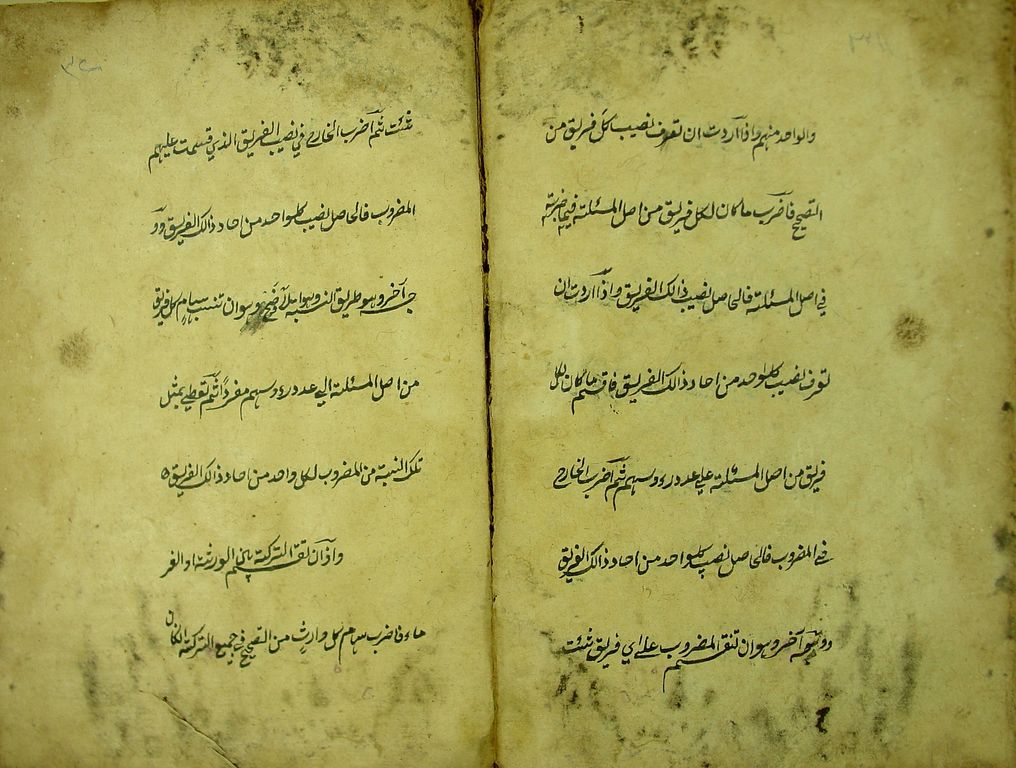 والواحد منهم واذا اردت ان تعرف نصيب كل فريق من
التصحيح فاضرب ما كان لكل فريق من اصل المسئلة فيما ضربته
في اصل المسئلة فالحاصل نصيب ذالك الفريق واذا اردت ان
تعرف نصيب كلواحد من احاد ذالك الفريق فاقسم ما كان لكل
فريق من اصل المسئلة علي عدد رءوسهم ثم اضرب الخارج
في المضروب فالحاصل نصيب كلواحد من احاد ذالك الفريق
ووجه آخر وهو ان تقسم المضروب علي اي فريق شئت
شئت ثم اضرب الخارج في نصيب الفريق الذي قسمت عليهم
المضروب فالحاصل نصيب كلواحد من احاد ذالك الفريق وو
جه آخر وهو طريق النسبة وهو ان تنسب سهام كل فريق
من اصل المسئلة الي عدد رءوسهم مفردا ثم تعطي بمثل
تلك النسبة من المضروب لكل واحد من احاد ذالك الفريق
التركة الورثة او الغر
ماء فاضرب سهام كل وارث من التصحيح في جميع التركة